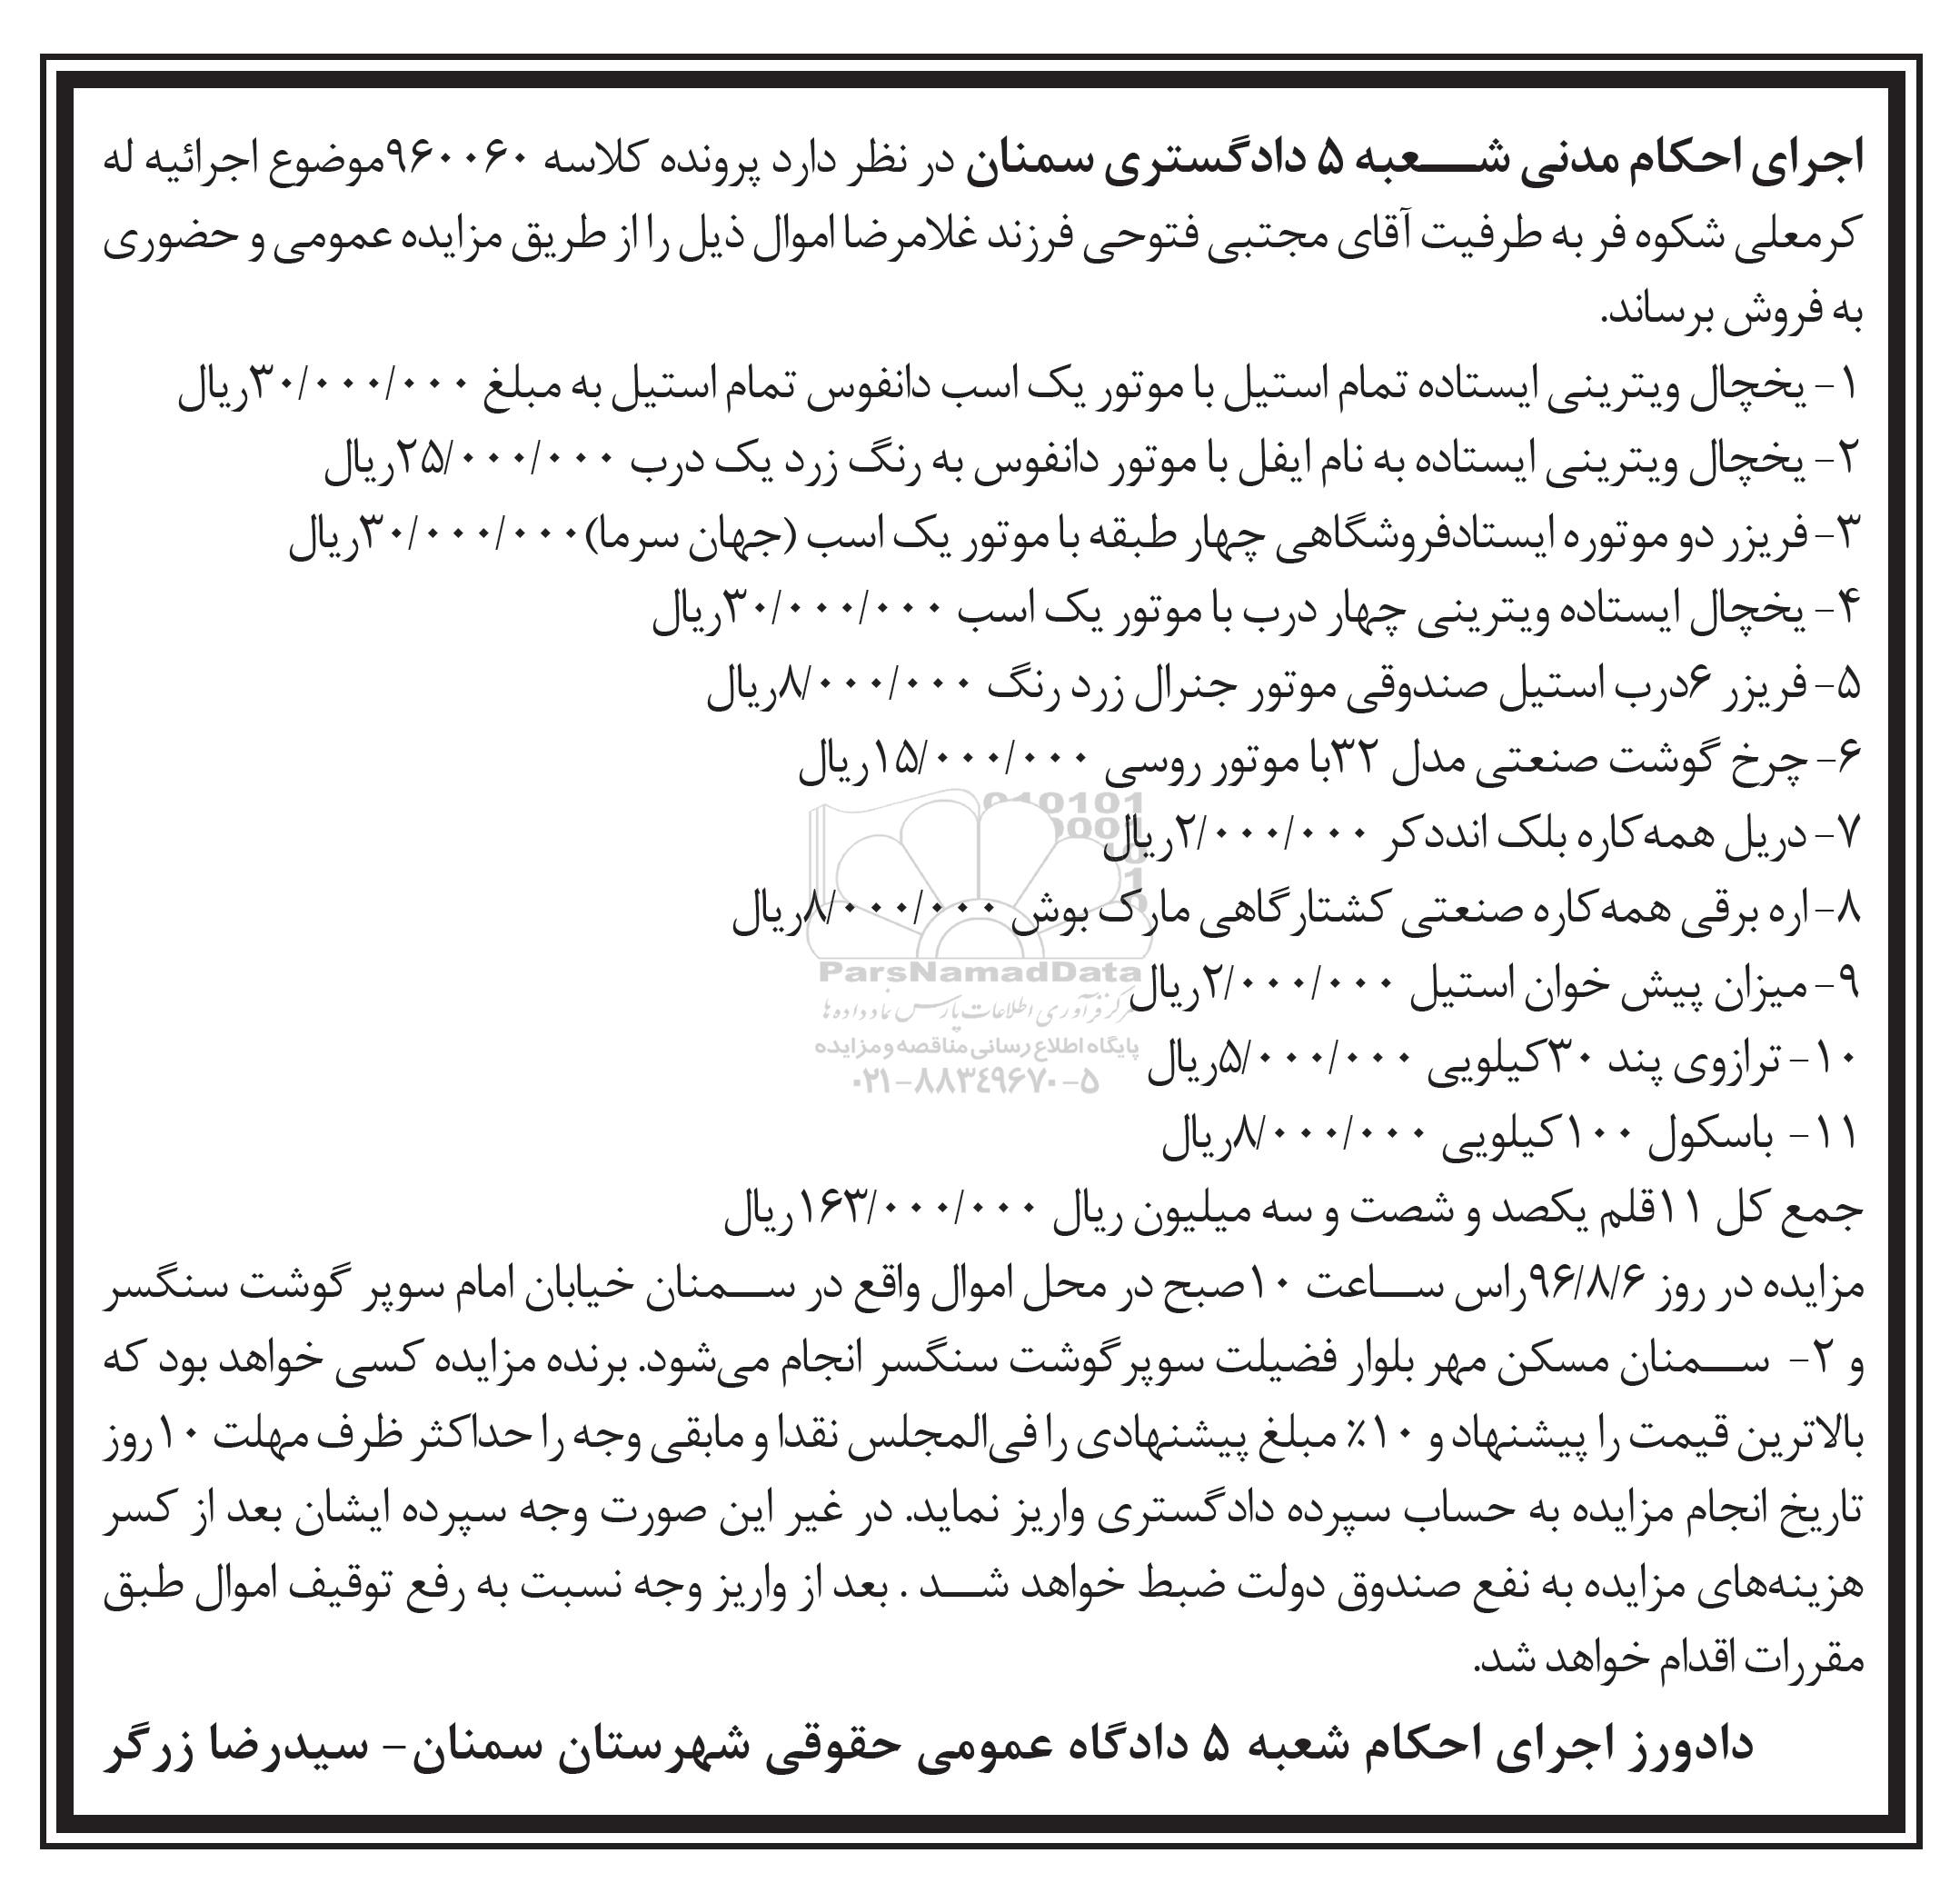 اجرای احکام مدنی شـــعبه ۵ دادگستری سمنان در نظر دارد پرونده کلاسه ۹۶۰۰۶۰موضوع اجرائیه له
کرمعلی شکوه فر به طرفیت آقای مجتبی فتوحی فرزند غلامرضا اموال ذیل را از طریق مزایده عمومی و حضوری
به فروش برساند.
۱- یخچال ویترینی ایستاده تمام استیل با موتور یک اسب دانفوس تمام استیل به مبلغ ۳۰/۰۰۰/۰۰۰ریال
۲- یخچال ویترینی ایستاده به نام ایفل با موتور دانفوس به رنگ زرد یک درب ۲۵/۰۰۰/۰۰۰ریال
۳- فریزر دو موتوره ایستادفروشگاهی چهار طبقه با موتور یک اسب (جهان سرما)۳۰/۰۰۰/۰۰۰ریال
۴- یخچال ایستاده ویترینی چهار درب با موتور یک اسب ۳۰/۰۰۰/۰۰۰ریال
۵- فریزر ۶درب استیل صندوقی موتور جنرال زرد رنگ ۸/۰۰۰/۰۰۰ریال
۶- چرخ گوشت صنعتی مدل ۳۲با موتور روسی ۱۵/۰۰۰/۰۰۰ریال
۷- دریل همه‌کاره بلک انددکر ۲/۰۰۰/۰۰۰ریال
۸- اره برقی همه‌کاره صنعتی کشتارگاهی مارک بوش ۸/۰۰۰/۰۰۰ریال
۹- میزان پیش خوان استیل ۲/۰۰۰/۰۰۰ریال
۱۰- ترازوی پند ۳۰کیلویی ۵/۰۰۰/۰۰۰ریال
۱۱- باسکول ۱۰۰کیلویی ۸/۰۰۰/۰۰۰ریال
جمع کل ۱۱قلم یکصد و شصت و سه میلیون ریال ۱۶۳/۰۰۰/۰۰۰ریال
مزایده در روز ۹۶/۸/۶راس ســـاعت ۱۰صبح در محل اموال واقع در ســـمنان خیابان امام سوپر گوشت سنگسر
و ۲- ســـمنان مسکن مهر بلوار فضیلت سوپرگوشت سنگسر انجام می‌شود. برنده مزایده کسی خواهد بود که
بالاترین قیمت را پیشنهاد و ۱۰٪ مبلغ پیشنهادی را فی‌المجلس نقدا و مابقی وجه را حداکثر ظرف مهلت ۱۰روز
تاریخ انجام مزایده به حساب سپرده دادگستری واریز نماید. در غیر این صورت وجه سپرده ایشان بعد از کسر
هزینه‌های مزایده به نفع صندوق دولت ضبط خواهد شـــد . بعد از واریز وجه نسبت به رفع توقیف اموال طبق
مقررات اقدام خواهد شد.
دادورز اجرای احکام شعبه ۵ دادگاه عمومی حقوقی شهرستان سمنان- سیدرضا زرگر
ParsNamadData
مرکز فرآوری اطلاعات پارس نماد داده ها
پایگاه اطلاع رسانی مناقصه و مزایده
۰۲۱-۸۸۳۴۹۶۷۰-۵